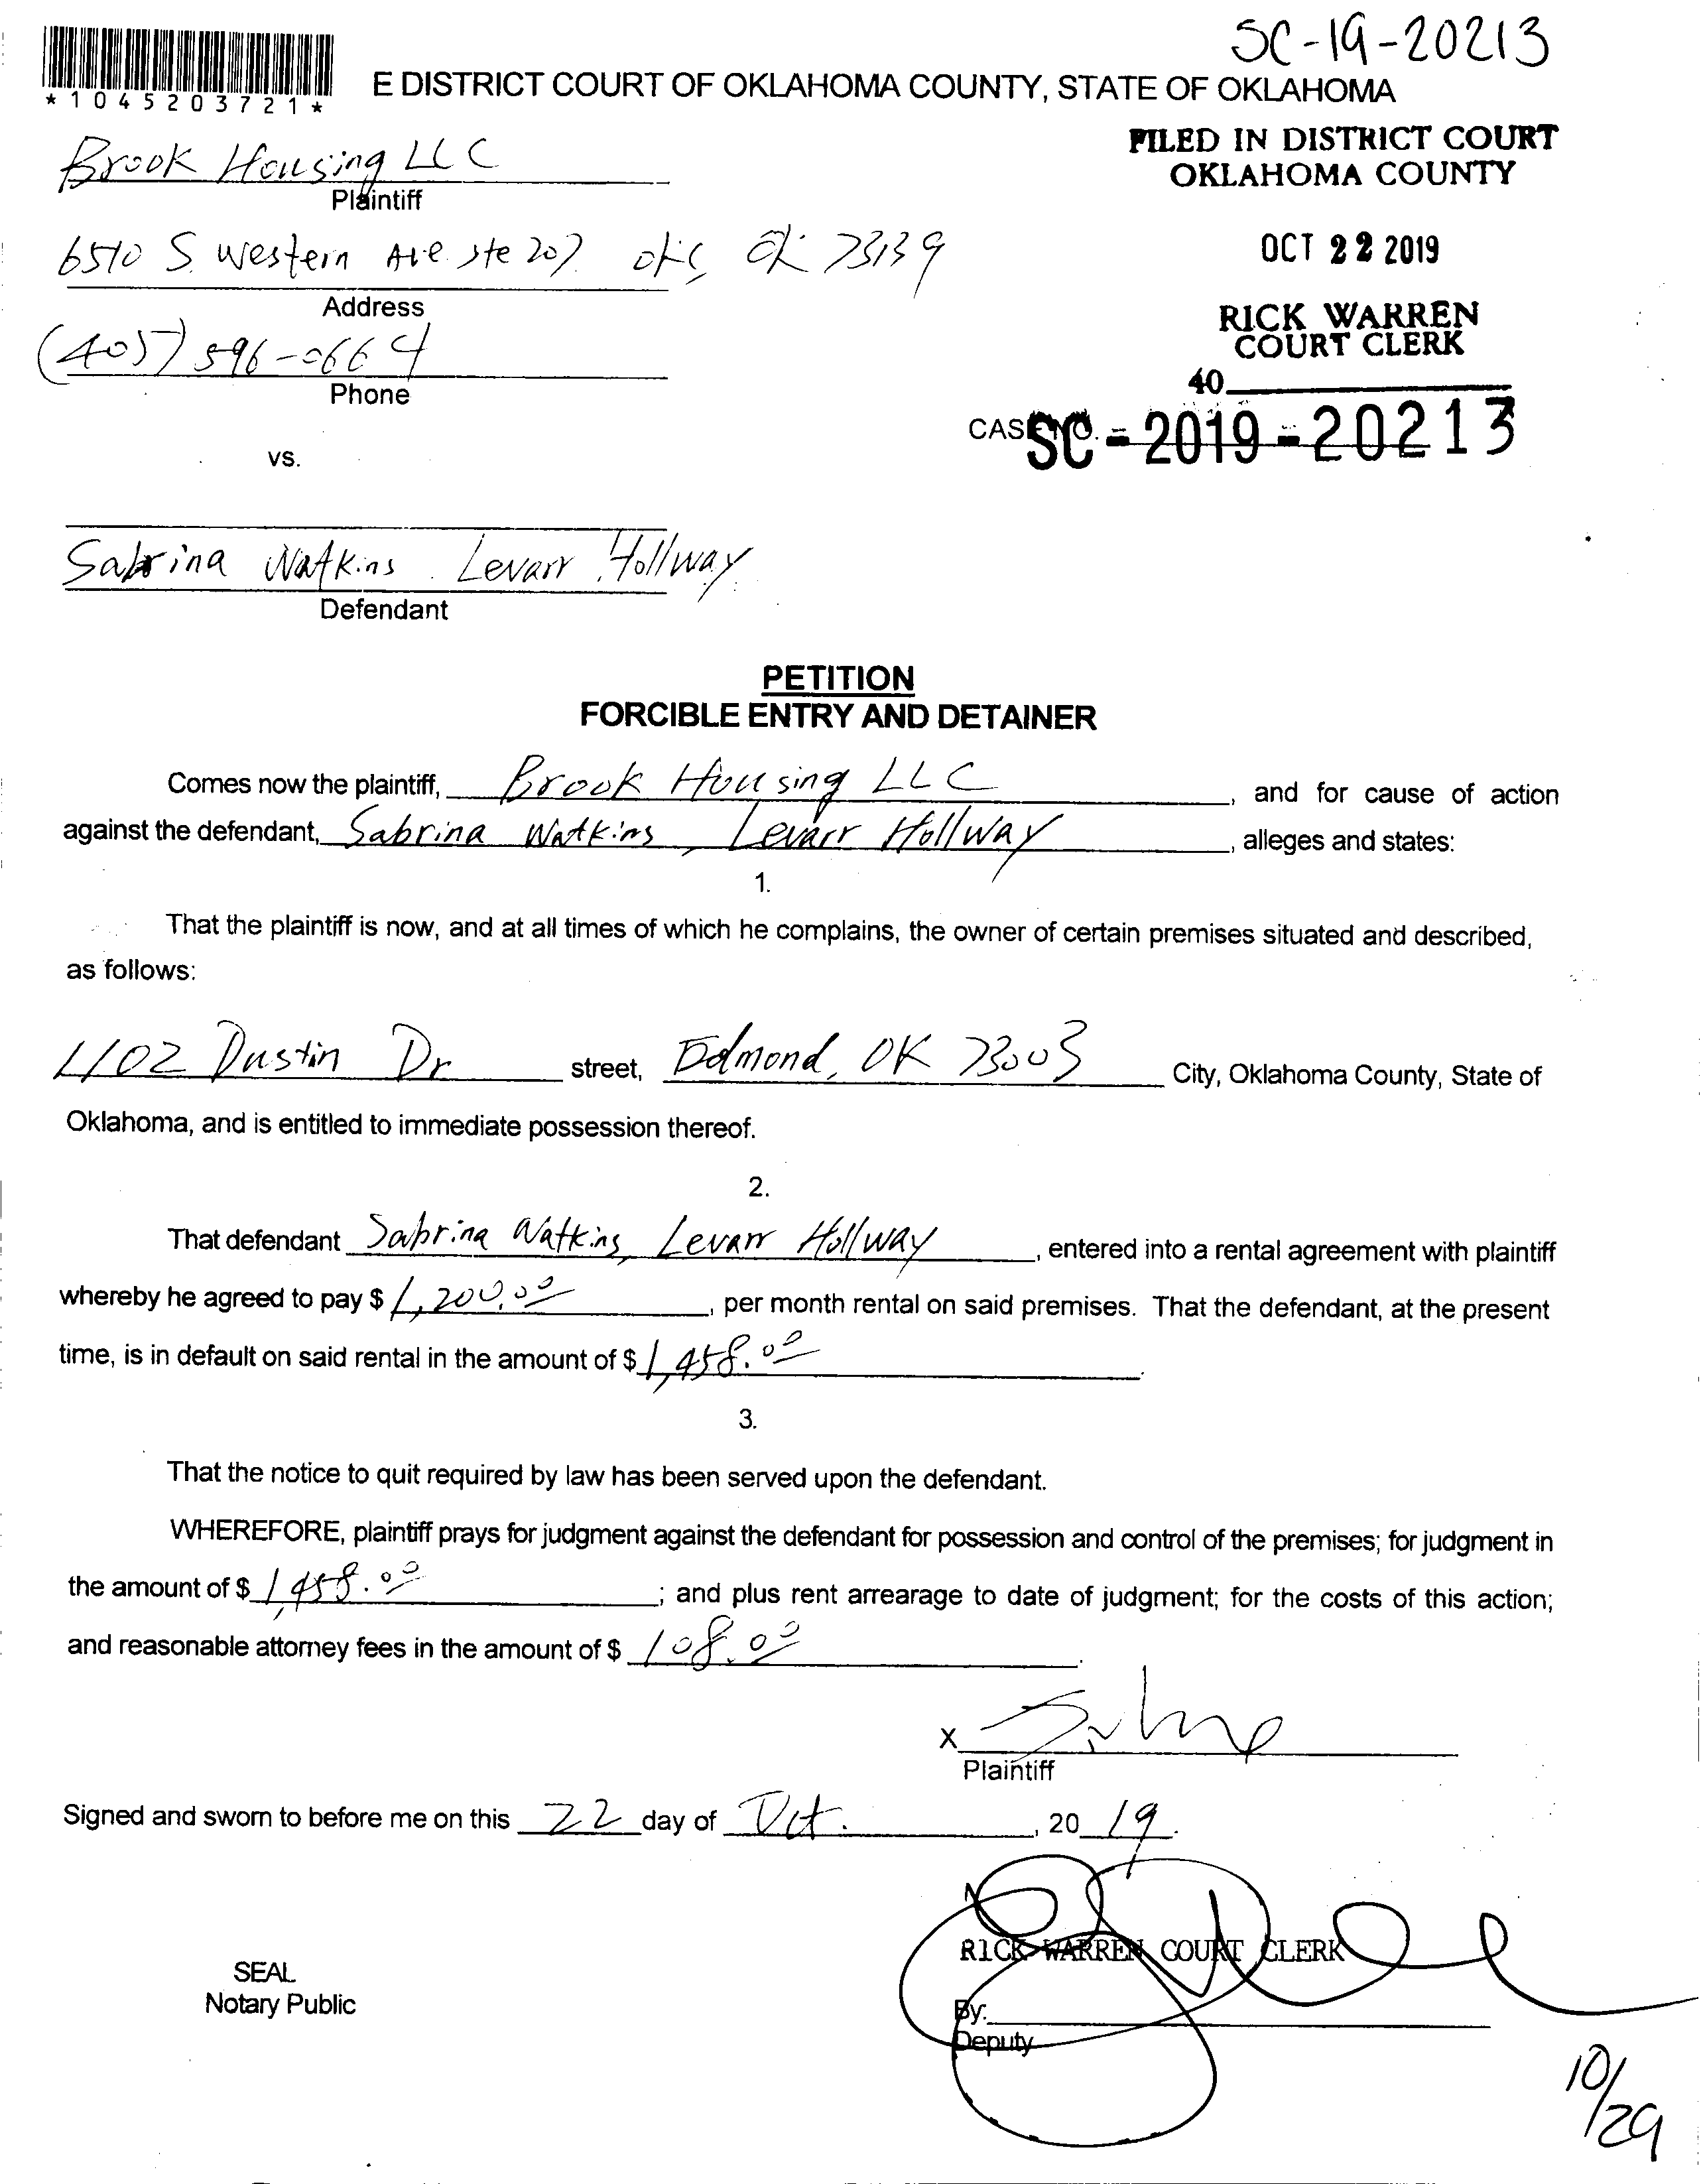 SC-19-20213
*1045203721*
E DISTRICT COURT OF OKLAHOMA COUNTY, STATE OF OKLAHOMA
FILED IN DISTRICT COURT
OKLAHOMA COUNTY
Brook Housing LLC
Plaintiff
6510 S. Western Ave Ste 207 okc, OK 73139
Address
OCT 22 2019
(405) 596-0664
Phone
RICK WARREN
COURT CLERK
40
CASE NO. SC-2019-20213
vs.
Sabrina Watkins Levarr Hollway
Defendant
PETITION
FORCIBLE ENTRY AND DETAINER
Comes now the plaintiff, Brook Housing LLC, and for cause of action
against the defendant, Sabrina Watkins, Levarr Hollway, alleges and states:
1.
That the plaintiff is now, and at all times of which he complains, the owner of certain premises situated and described,
as follows:
1102 Dustin Dr street, Edmond, OK 73003 City, Oklahoma County, State of
Oklahoma, and is entitled to immediate possession thereof.
2.
That defendant Sabrina Watkins, Levarr Hollway, entered into a rental agreement with plaintiff
whereby he agreed to pay $ 1,200.00, per month rental on said premises. That the defendant, at the present
time, is in default on said rental in the amount of $ 1,458.00.
3.
That the notice to quit required by law has been served upon the defendant.
WHEREFORE, plaintiff prays for judgment against the defendant for possession and control of the premises; for judgment in
the amount of $ 1,458.00; and plus rent arrearage to date of judgment; for the costs of this action;
and reasonable attorney fees in the amount of $ 108.00.
X
Plaintiff
Signed and sworn to before me on this 22 day of Oct., 20 19.
RICK WARREN COURT CLERK
SEAL
Notary Public
By:
Deputy
10/29